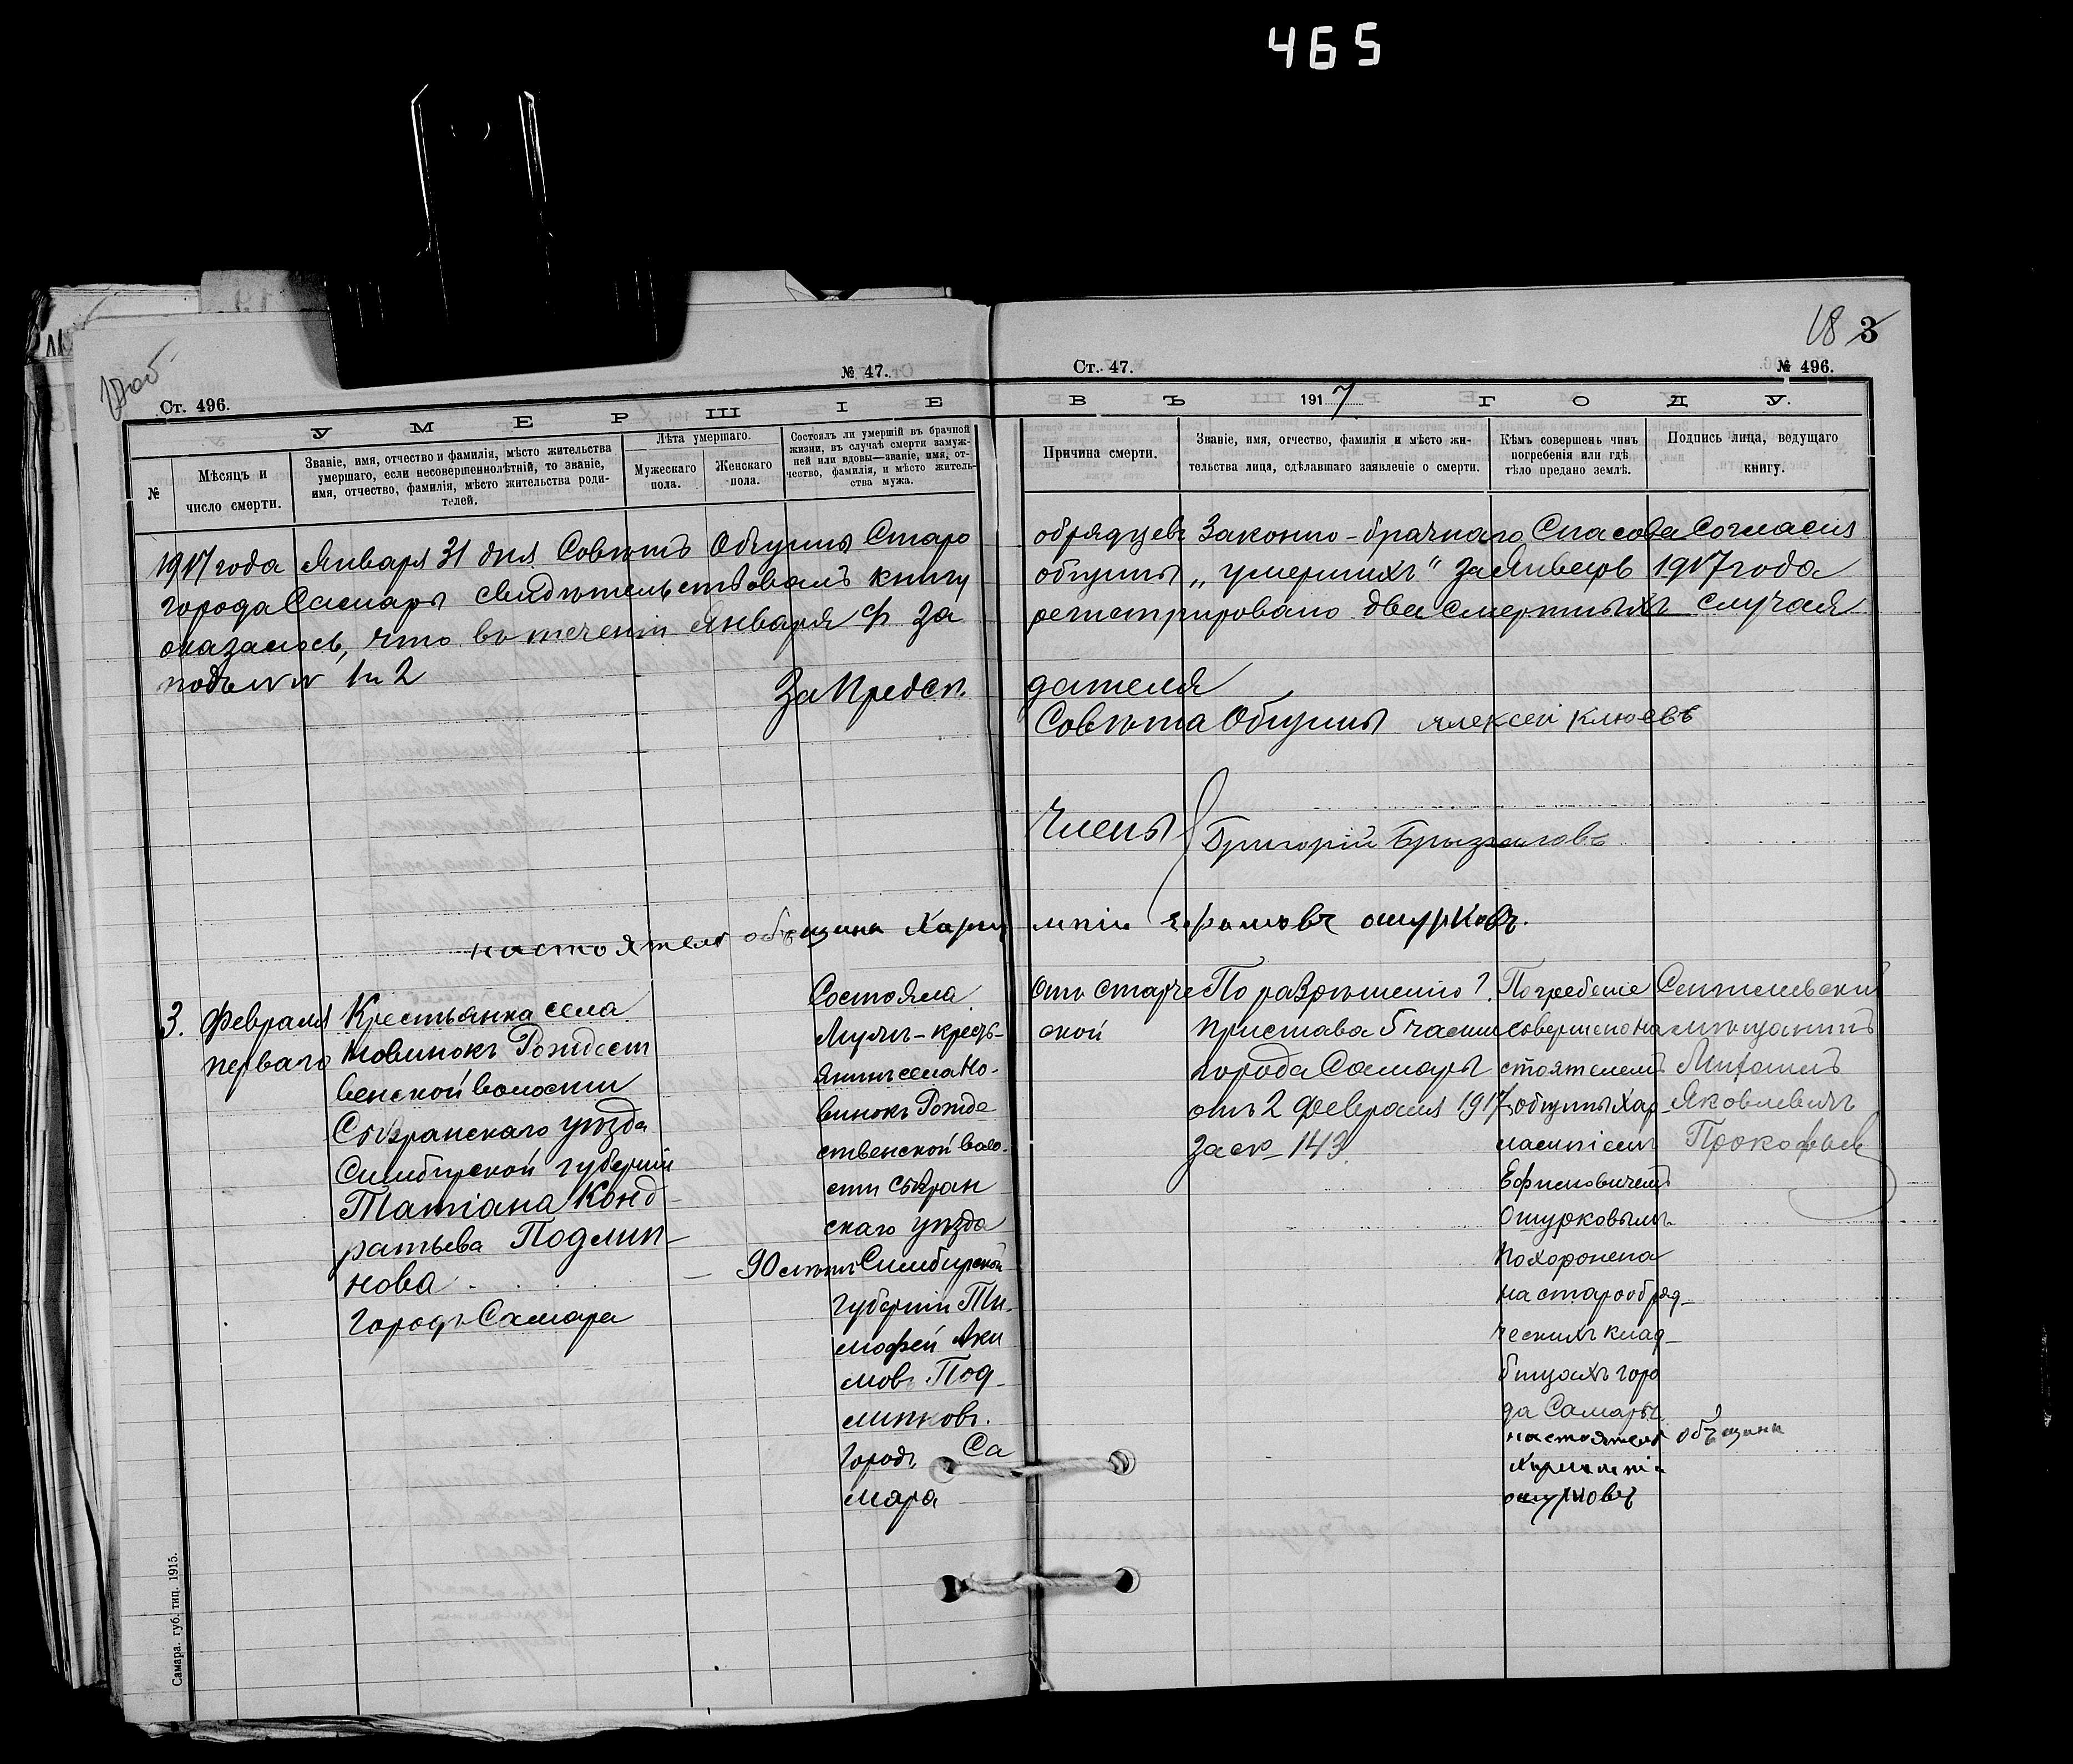 465
18 3
Ст. 496.
№ 47.
Ст. 47.
№ 496.
УМЕРШІЕ
ВЪ 1917 ГОДУ.
№
Мѣсяцъ и число смерти.
Званіе, имя, отчество и фамилія, мѣсто жительства
умершаго, если несовершеннолѣтній, то званіе,
имя, отчество, фамилія, мѣсто жительства роди-
телей.
Лѣта умершаго.
Мужескаго пола.
Женскаго пола.
Состоялъ ли умершій въ брачной
жизни, въ случаѣ смерти замуж-
ней или вдовы—званіе, имя, от-
чество, фамилія, и мѣсто житель-
ства мужа.
Причина смерти.
Званіе, имя, отчество, фамилія и мѣсто жи-
тельства лица, сдѣлавшаго заявленіе о смерти.
Кѣмъ совершенъ чинъ
погребенія или гдѣ
тѣло предано землѣ.
Подпись лица, ведущаго
книгу.
1917 года Января 31 дня Совѣтъ Общины Старо обрядцевъ Законно-брачнаго Спасова Согласія
города Самары свидѣтельствовалъ книгу общины „умершихъ" за Январь 1917 года
оказалось, что въ теченіи Января за регистрировано два смертныхъ случая
подъ №№ 1 и 2
За Предсѣ дателя
Совѣта Общины Алексей Клюевъ
Члены
Григорій Брызгаловъ
настоятель общины Харлампіи Ефимовъ ошурковъ.
3.
Февраля
перваго
Крестьянка села
Новинокъ Рождест
венской волости
Сызранскаго уѣзда
Симбирской губерніи
Татіана Конд-
ратьева Подлип-
нова
Городъ Самара
90 лѣтъ
Состояла
Мужъ-кресть-
янинъ села Но-
винокъ Рожде
ственской воло-
сти Сызран
скаго уѣзда
Симбирской
губерніи Ти-
мофей Аки
мовъ Под-
липновъ.
Городъ Са
мара
Отъ старче
ской
По разрѣшенію г.
Пристава 5 части
города Самары
отъ 2 февраля 1917
за № 143.
Погребеніе
совершено на
стоятелемъ
общины Хар
лампіемъ
Ефимовичемъ
Ошурковымъ.
Похоронена
на старообряд-
ческихъ клад-
бищахъ горо
да Самары
настоятель общины
Харлампіи
ошурковъ
мѣщанинъ
Яковлевичъ
Прокофьев
Самара. губ. тип. 1915.